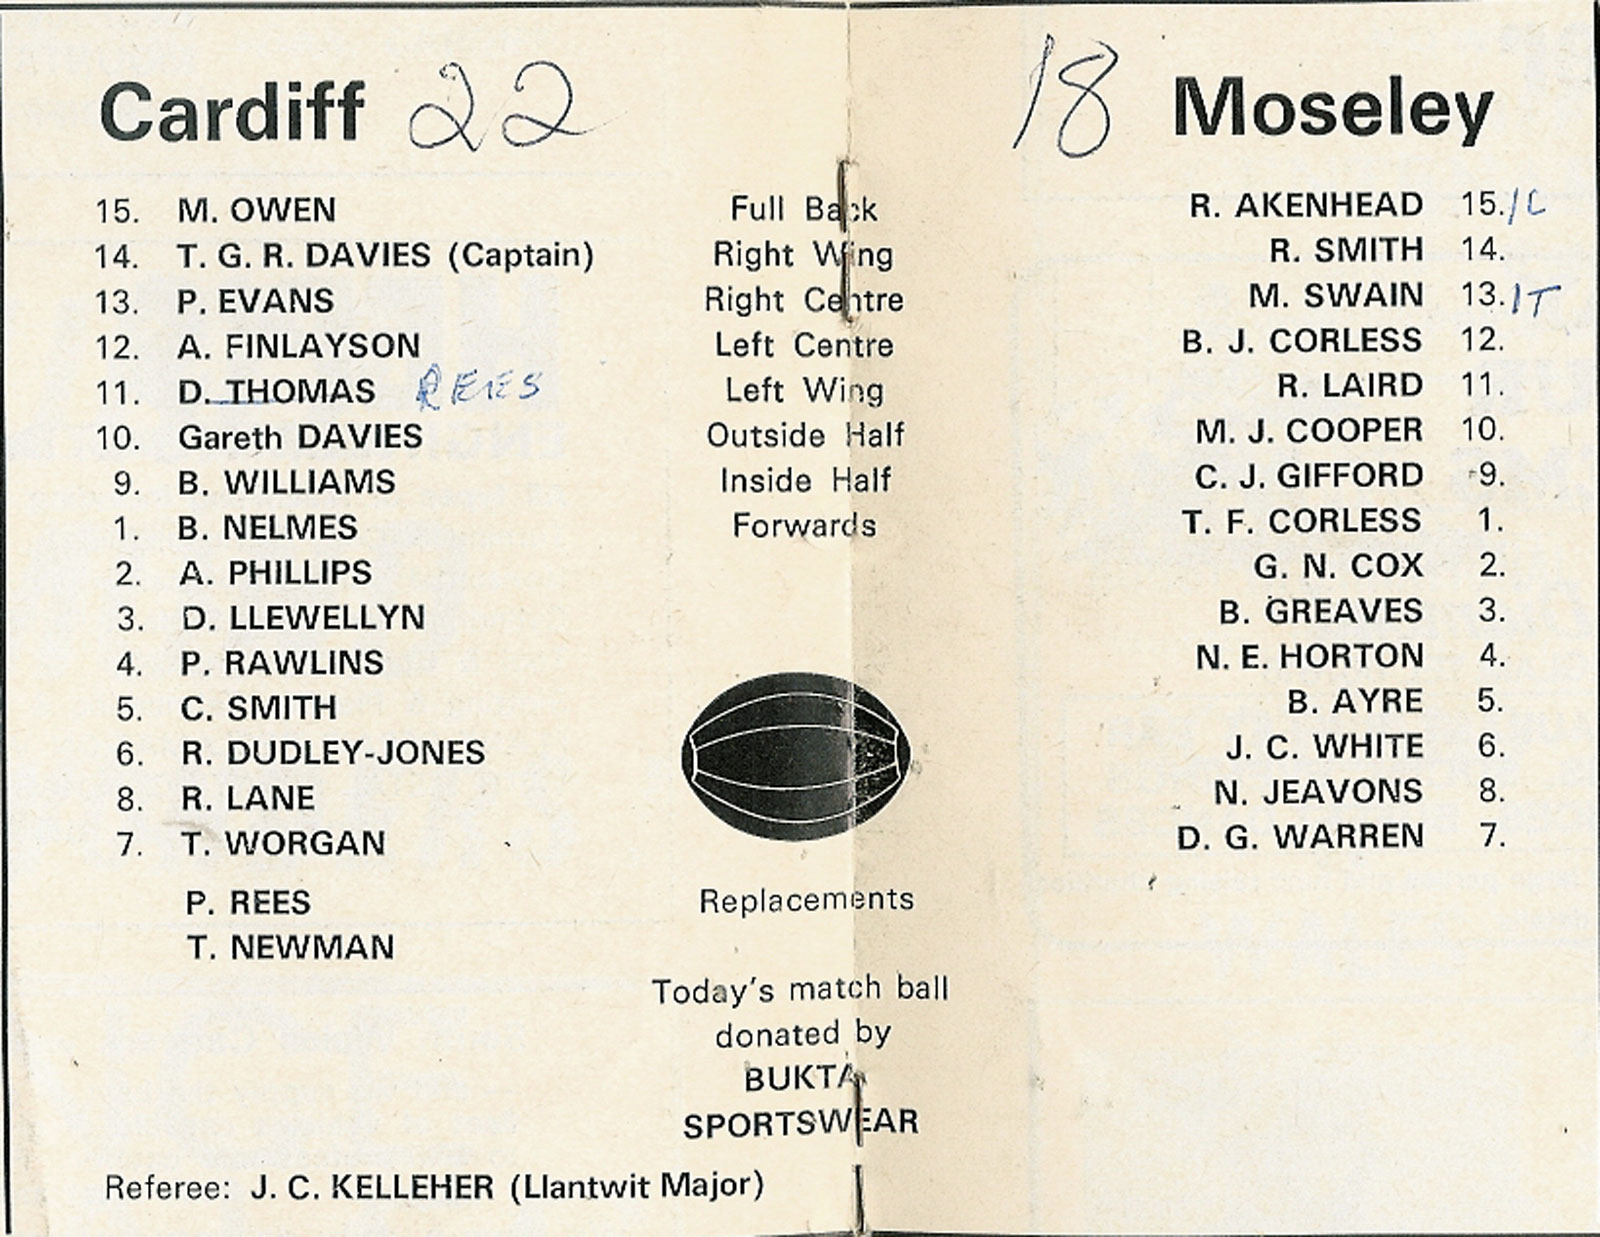 Cardiff 22
18 Moseley
15. M. OWEN Full Back R. AKENHEAD 15. 1C
14. T. G. R. DAVIES (Captain) Right Wing R. SMITH 14.
13. P. EVANS Right Centre M. SWAIN 13. 1T
12. A. FINLAYSON Left Centre B. J. CORLESS 12.
11. D. THOMAS REES Left Wing R. LAIRD 11.
10. Gareth DAVIES Outside Half M. J. COOPER 10.
9. B. WILLIAMS Inside Half C. J. GIFFORD 9.
1. B. NELMES Forwards T. F. CORLESS 1.
2. A. PHILLIPS G. N. COX 2.
3. D. LLEWELLYN B. GREAVES 3.
4. P. RAWLINS N. E. HORTON 4.
5. C. SMITH B. AYRE 5.
6. R. DUDLEY-JONES J. C. WHITE 6.
8. R. LANE N. JEAVONS 8.
7. T. WORGAN D. G. WARREN 7.
P. REES Replacements
T. NEWMAN
Today's match ball
donated by
BUKTA
SPORTSWEAR
Referee: J. C. KELLEHER (Llantwit Major)